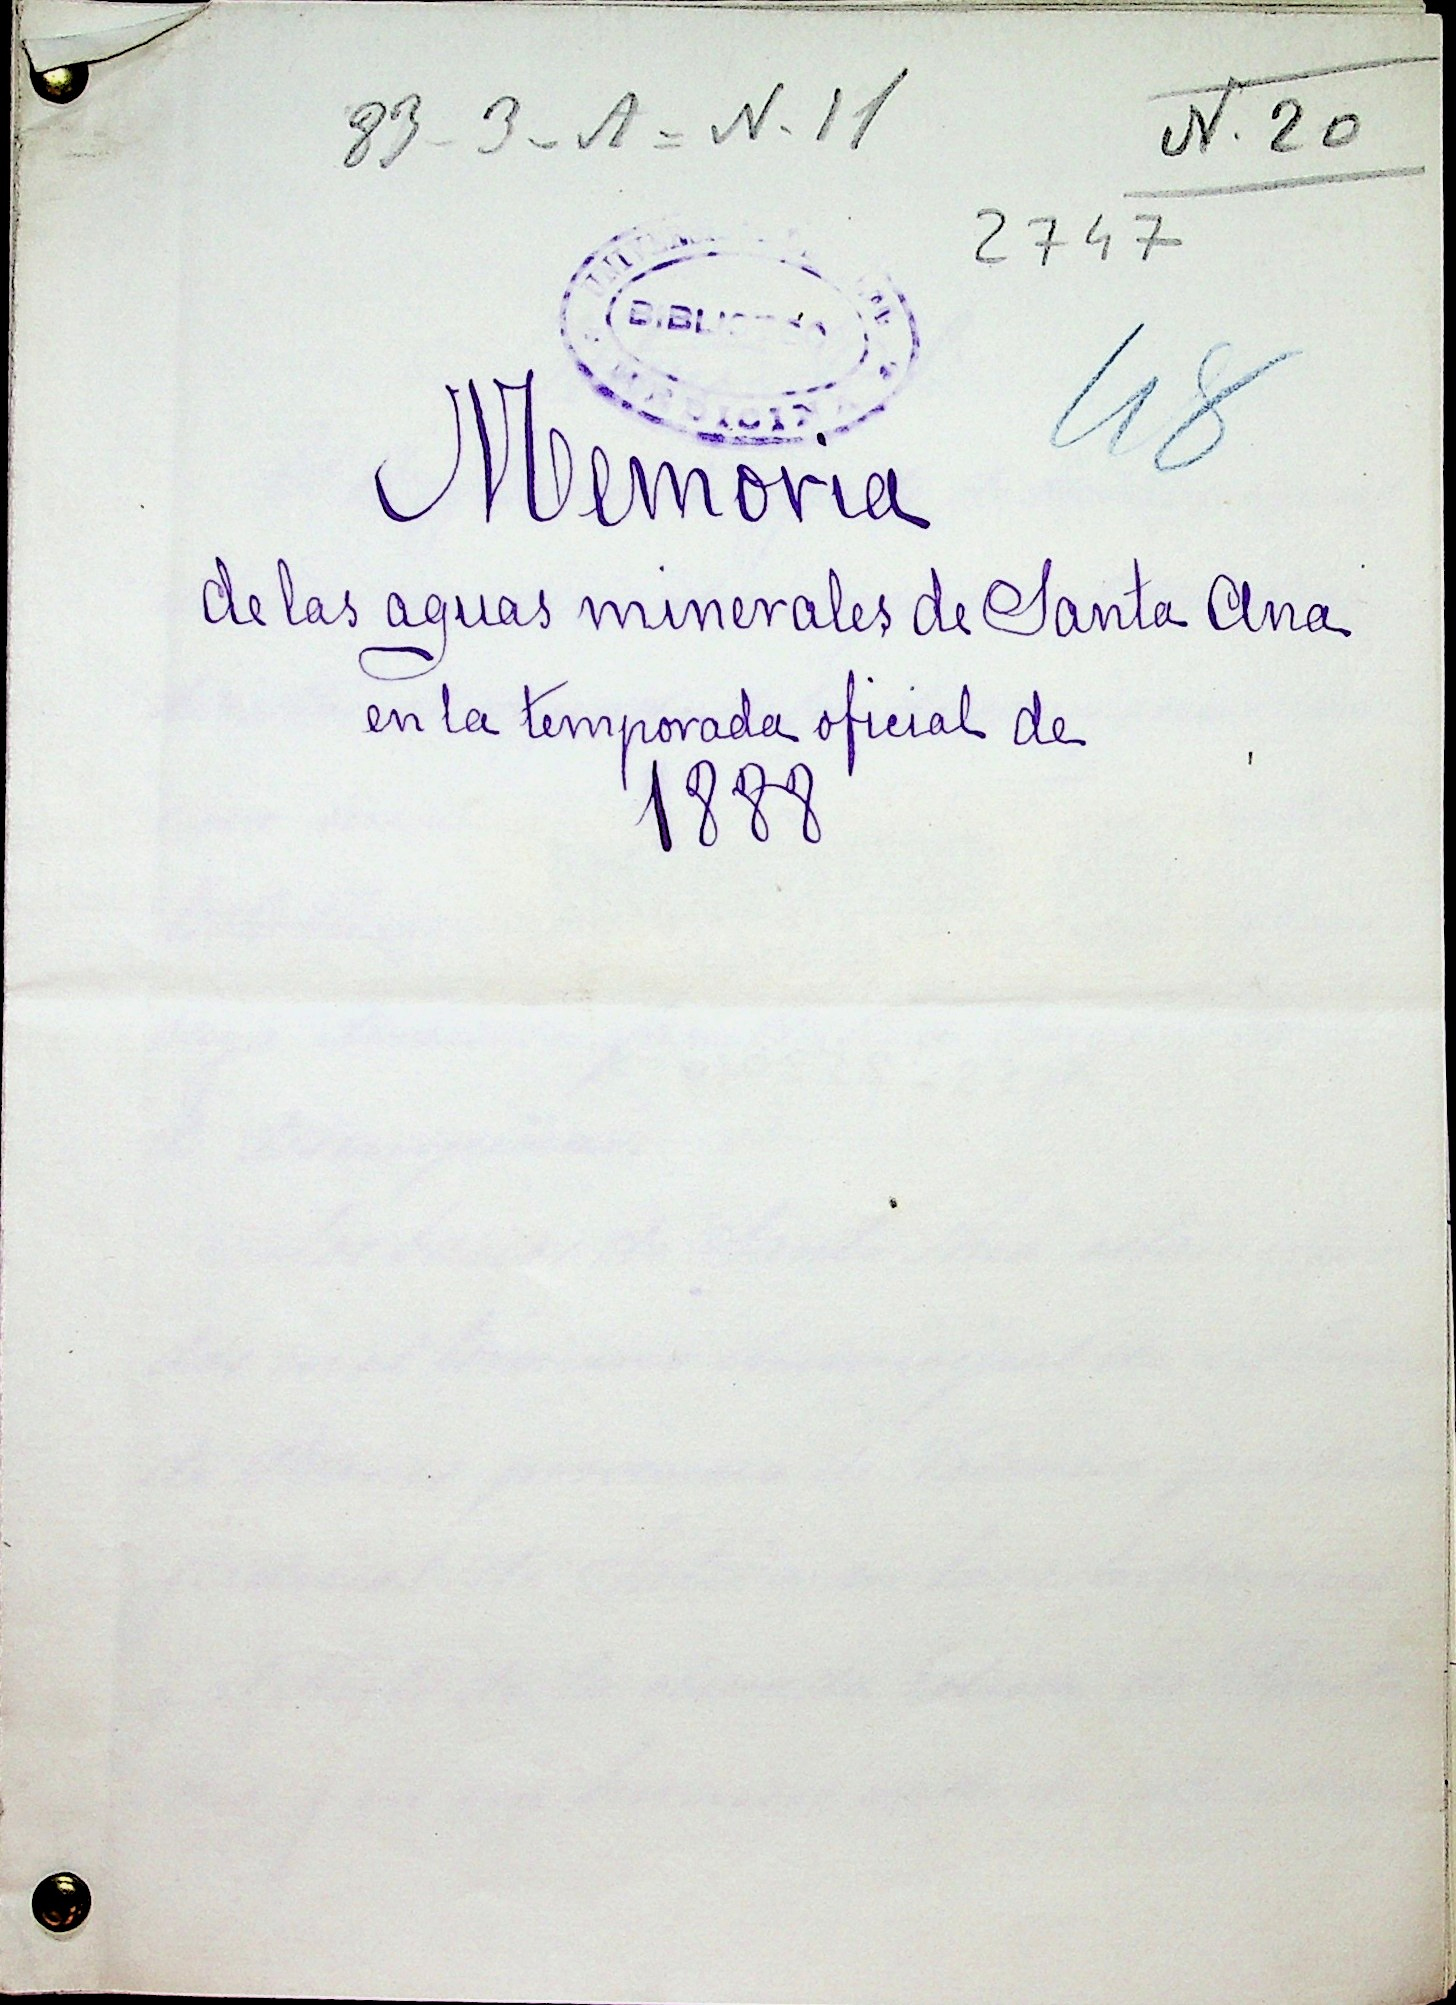 83-3-A=N.11
N.20
2747
BIBLIOTECA
MEDICINA
48
Memoria
de las aguas minerales de Santa Ana
en la temporada oficial de
1888